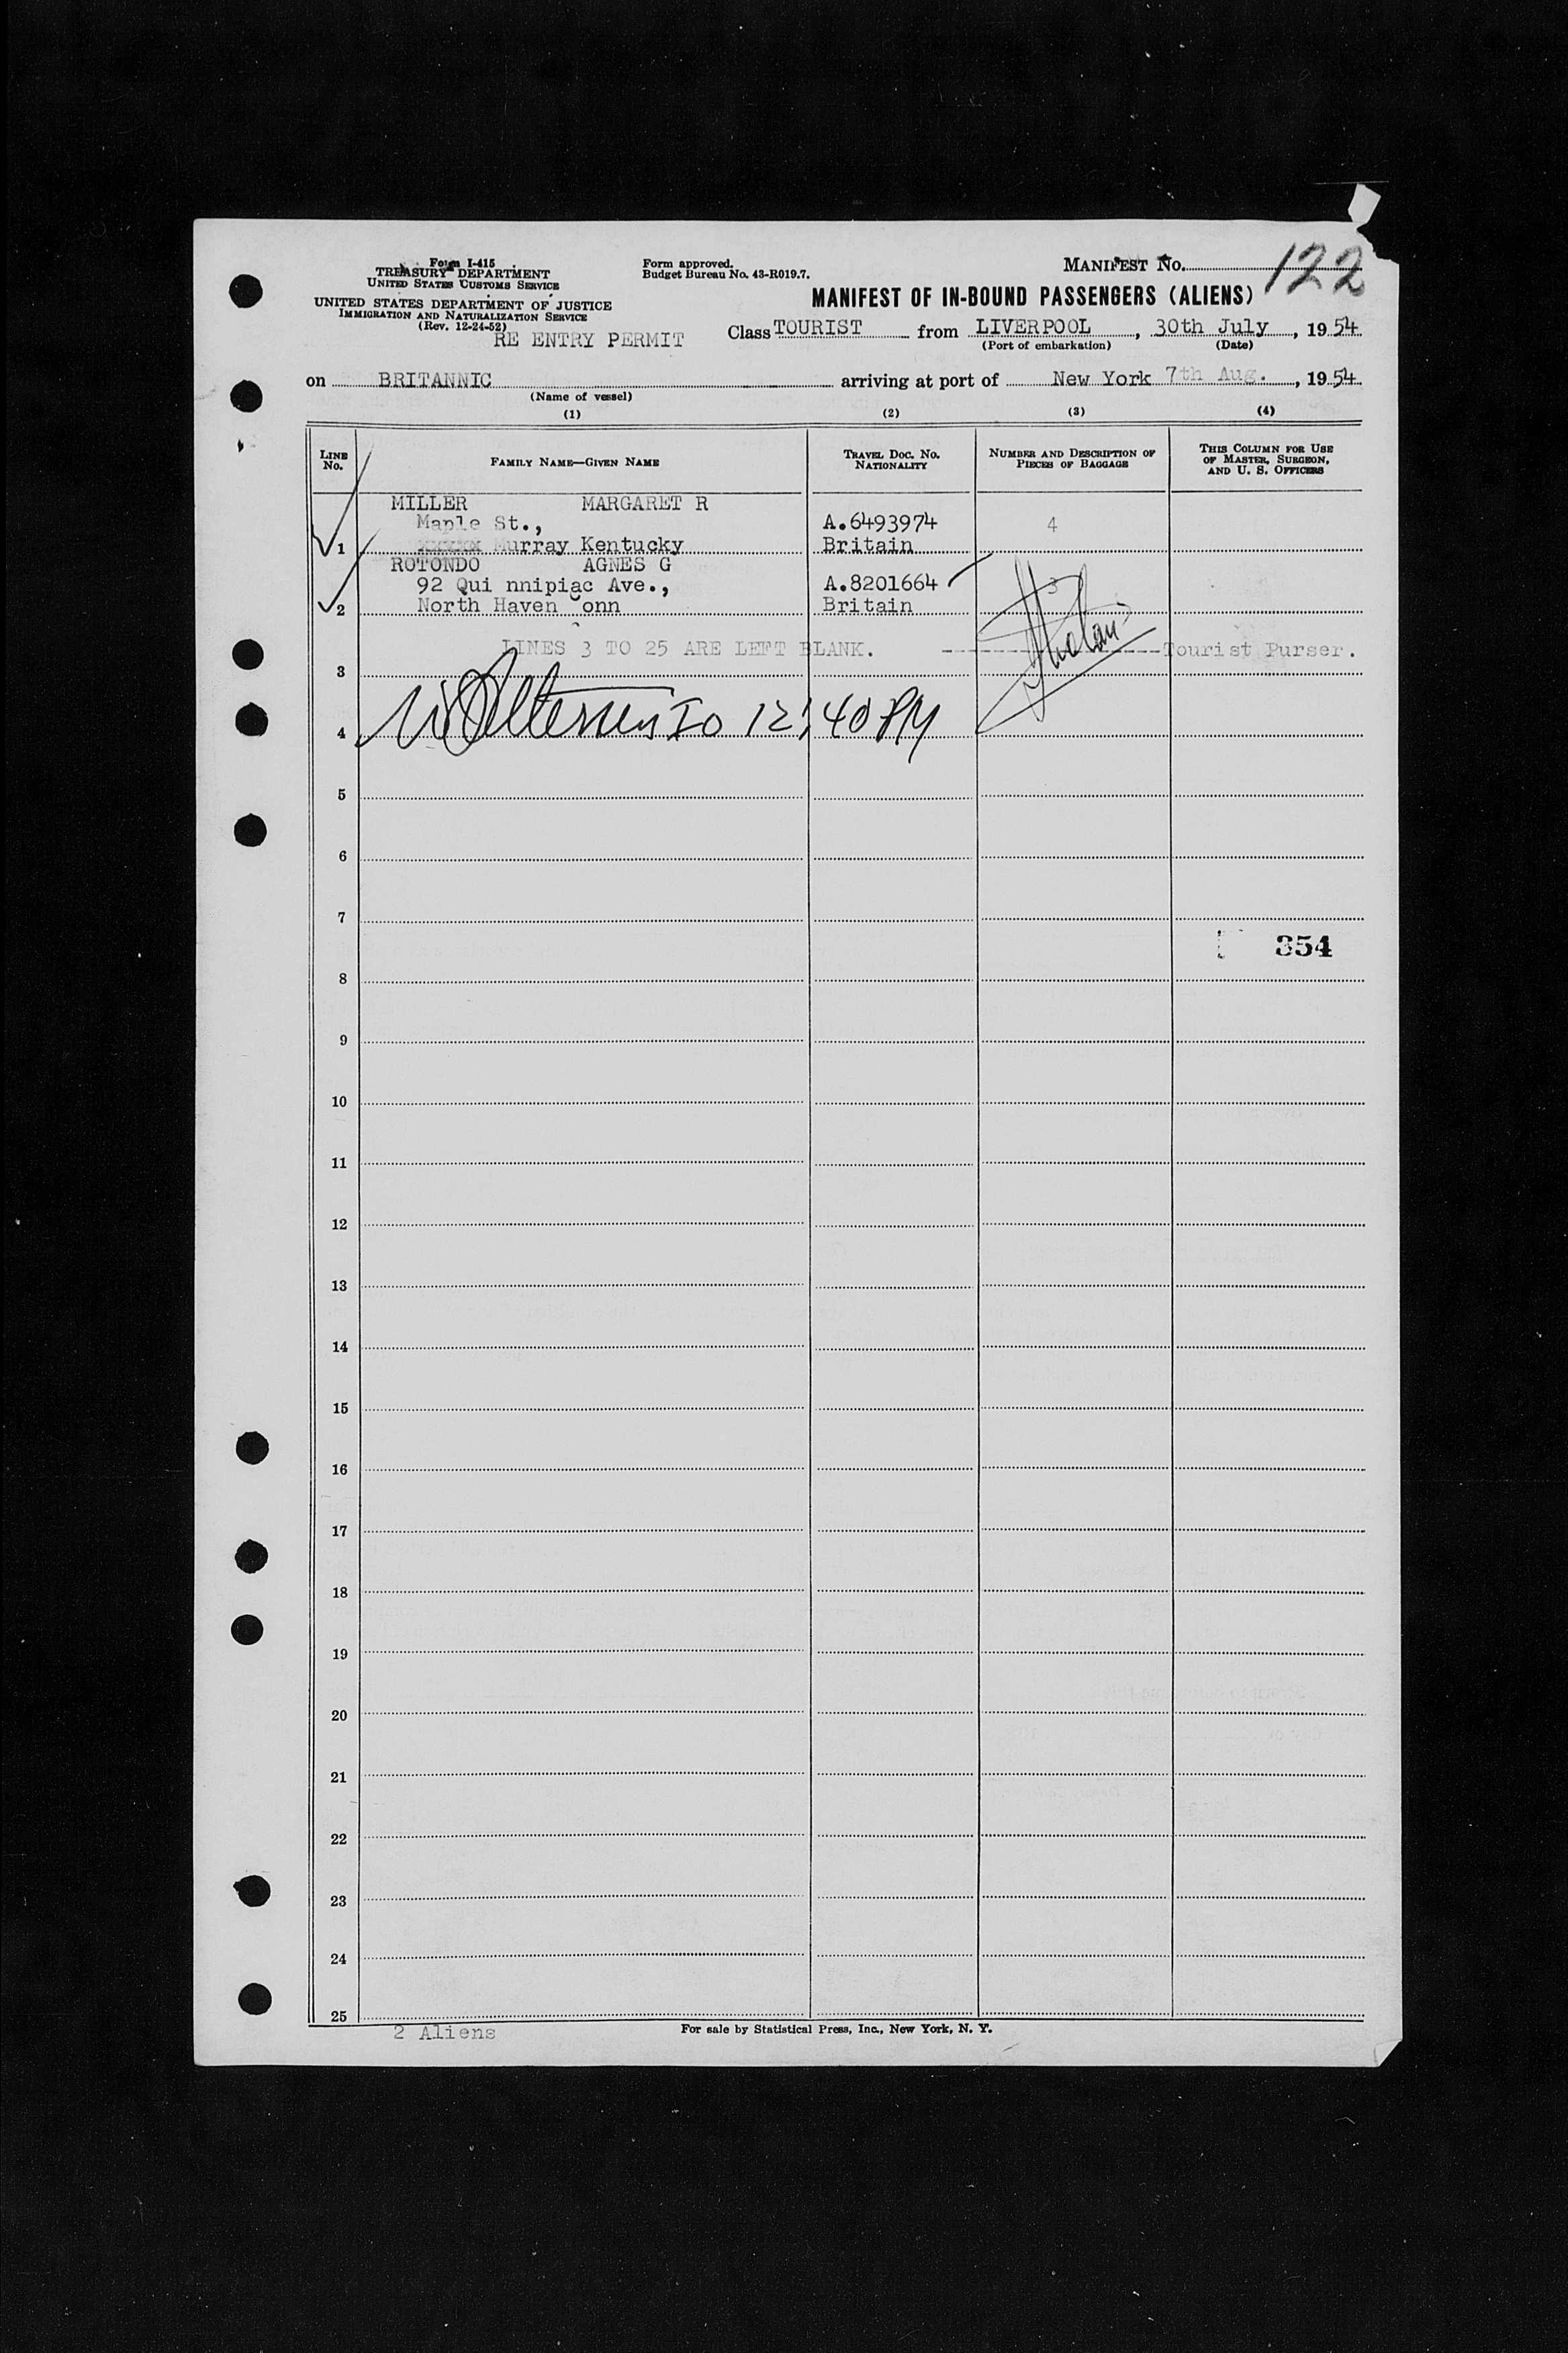 Form I-415
TREASURY DEPARTMENT
UNITED STATES CUSTOMS SERVICE
UNITED STATES DEPARTMENT OF JUSTICE
IMMIGRATION AND NATURALIZATION SERVICE
(Rev. 12-24-52)
RE ENTRY PERMIT
Form approved.
Budget Bureau No. 43-R019.7.
MANIFEST No. 122
MANIFEST OF IN-BOUND PASSENGERS (ALIENS)
Class TOURIST from LIVERPOOL, 30th July, 1954
(Port of embarkation) (Date)
on BRITANNIC arriving at port of New York 7th Aug., 1954
(Name of vessel)
(1) (2) (3) (4)
LINE No. FAMILY NAME—GIVEN NAME TRAVEL DOC. NO. NATIONALITY NUMBER AND DESCRIPTION OF PIECES OF BAGGAGE THIS COLUMN FOR USE OF MASTER, SURGEON, AND U. S. OFFICERS
MILLER MARGARET R
Maple St., A.6493974 4
1 xxxxx Murray Kentucky Britain
ROTONDO AGNES G
92 Qui nnipiac Ave., A.8201664 3
2 North Haven Conn Britain
LINES 3 TO 25 ARE LEFT BLANK. Tourist Purser.
3
4 12:40 PM
5
6
7
354
8
9
10
11
12
13
14
15
16
17
18
19
20
21
22
23
24
25
2 Aliens
For sale by Statistical Press, Inc., New York, N. Y.